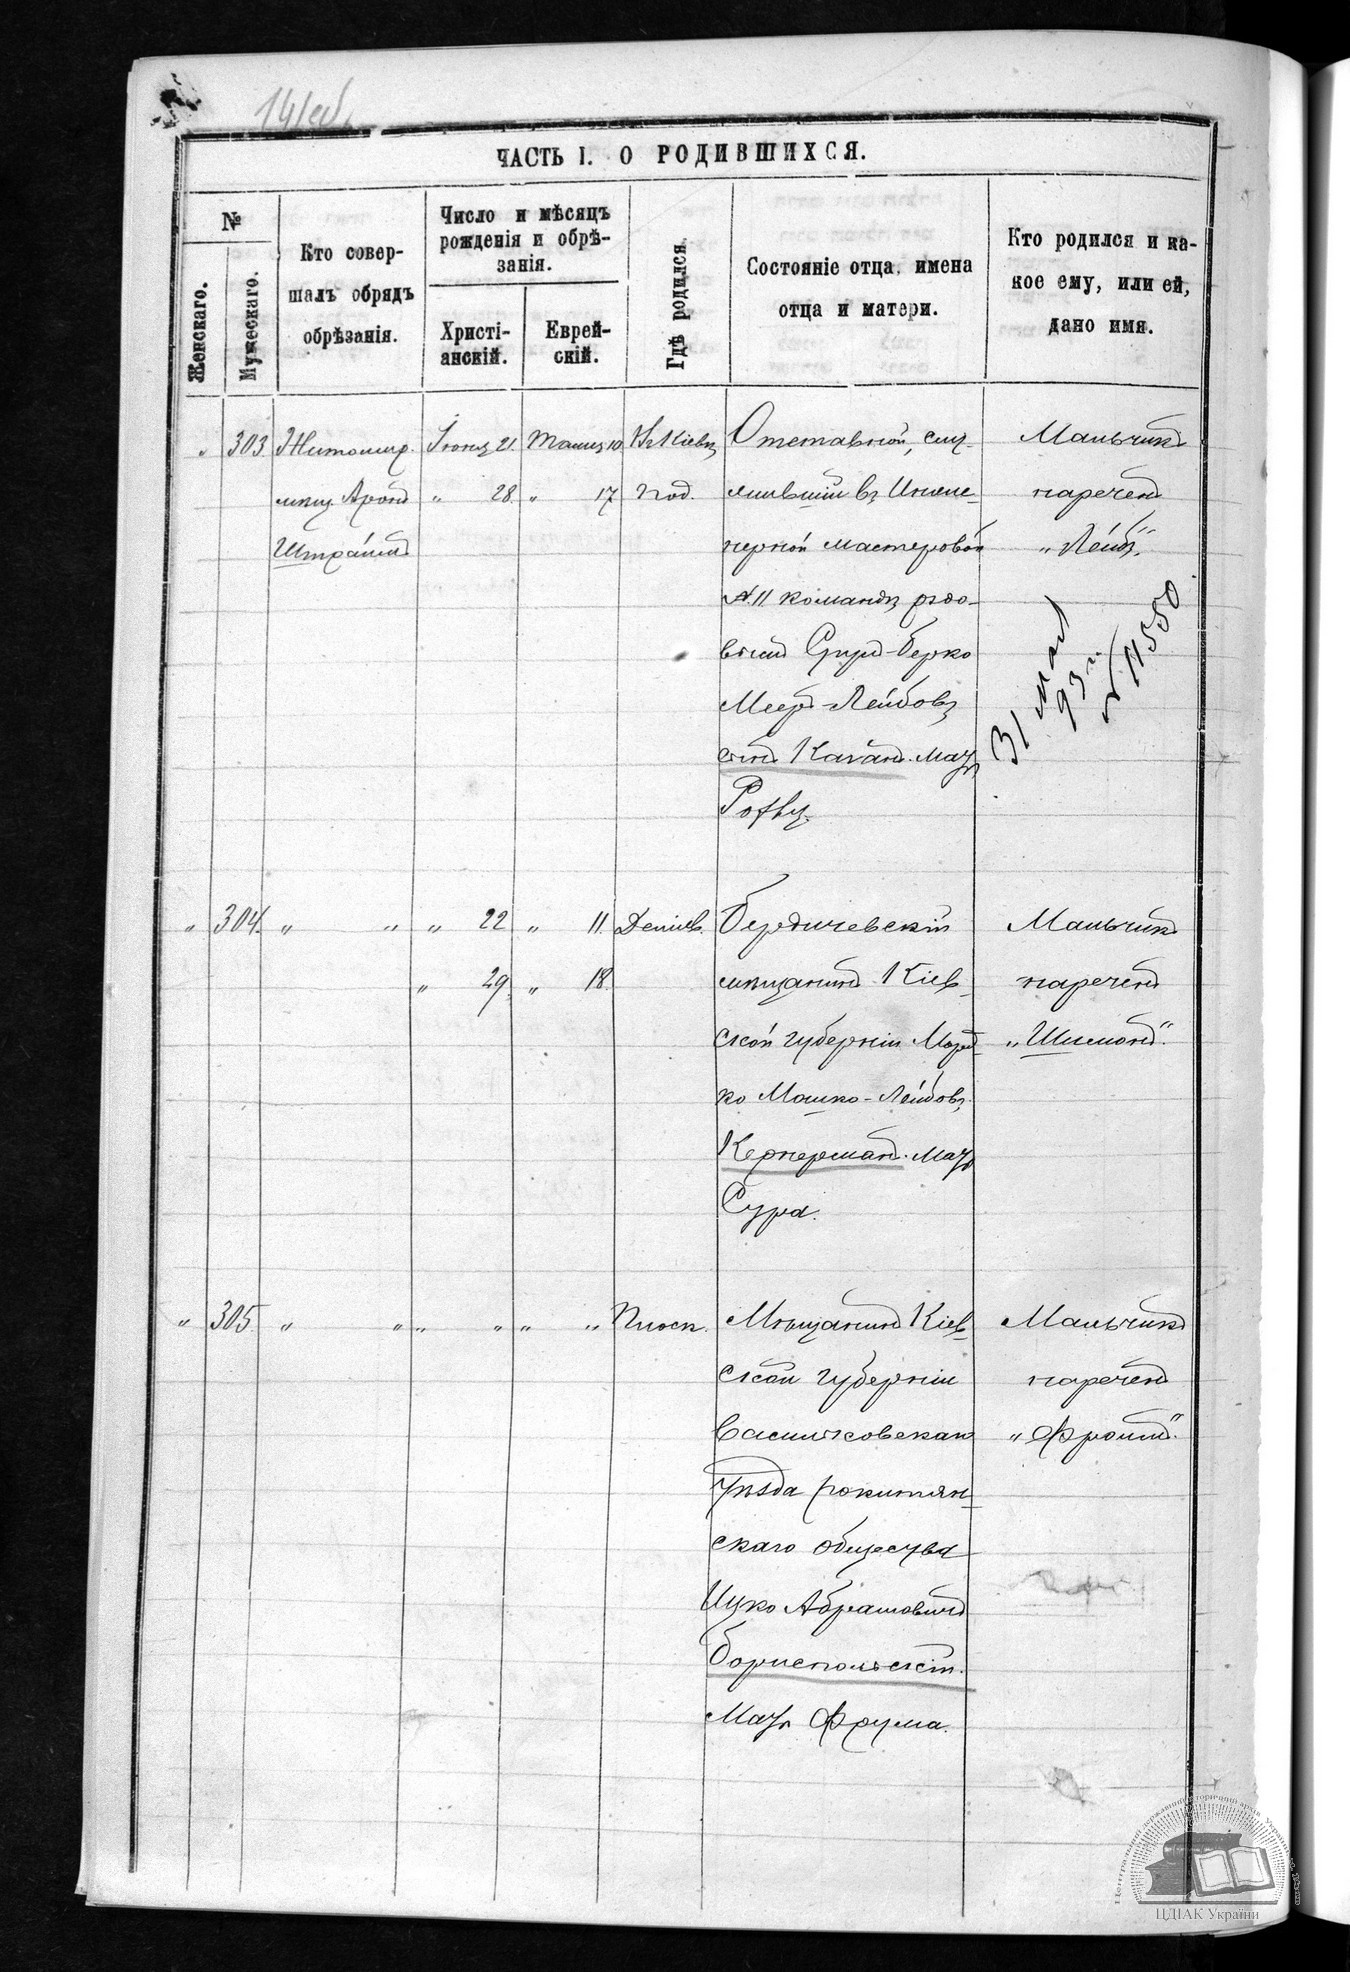 141об.
ЧАСТЬ I. О РОДИВШИХСЯ.
№
Женскаго.
Мужескаго.
Кто совер-
шалъ обрядъ
обрѣзанія.
Число и мѣсяцъ
рожденія и обрѣ-
занія.
Христі-
анскій.
Еврей-
скій.
Гдѣ родился.
Состояніе отца, имена
отца и матери.
Кто родился и ка-
кое ему, или ей,
дано имя.
„ 303
Житомир.
мѣщ. Аронъ
Іюня 21.
„ 28.
10
„ 17
Въ Кіевѣ
Под.
Отставной, слу-
жившій въ Инже-
нерной мастеровой
№11 командѣ рядо-
вымъ Сруль-Берко
Меер-Лейбовъ
сынъ Каганъ. Мать
Ривка.
Мальчикъ
нареченъ
„Лейбъ“.
31 мая
93 г.
№ 11550.
„ 304. „ „
„ 22
„ 29.
„ 11.
„ 18.
Деміев.
Бердичевскій
мѣщанинъ Кіев-
ской губерніи Морд-
ко Мошко-Лейбовъ
Кернерманъ. Мать
Сура.
Мальчикъ
нареченъ
„Шимонъ“.
„ 305. „ „ „ „ „ „
Плоск.
Мѣщанинъ Кіев-
ской губерніи
Васильковскаго
уѣзда рокитян-
скаго общества
Ицко Абрамовичъ
Бориспольскій.
Мать Фрума.
Мальчикъ
нареченъ
„Фроимъ“.
ЦДІАК України